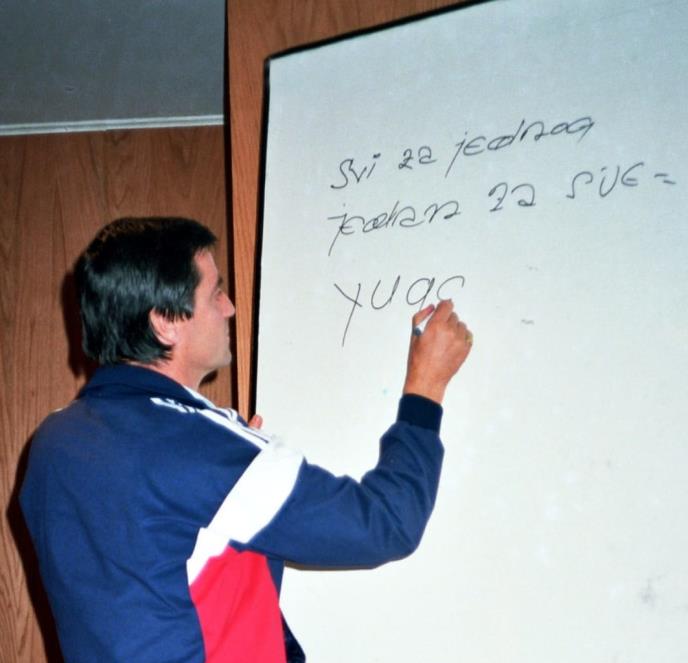 Svi za jednog
jedan za sve =
yugo